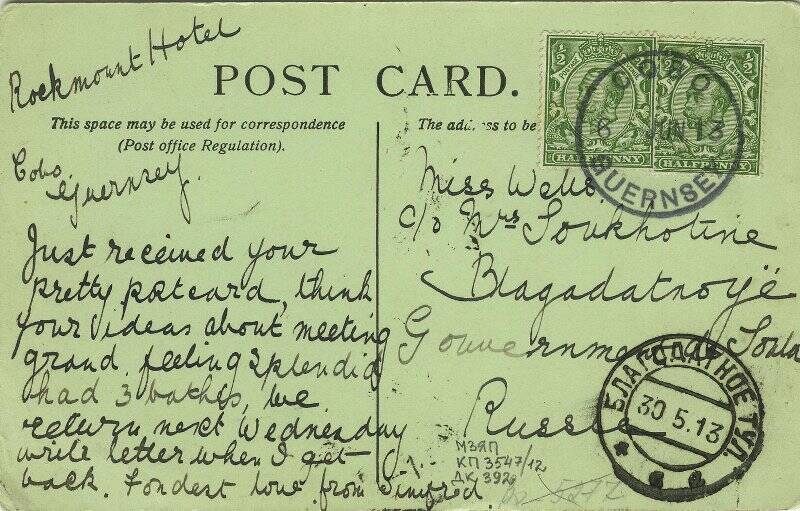 Rockmount Hotel
POST CARD.
This space may be used for correspondence
(Post office Regulation).
The add ss to be
Cobo
Guernsey.
Just received your
pretty postcard, think
your ideas about meeting
grand. feeling splendid
had 3 bathes, we
return next Wednesday
write letter when I get
back. Fondest love from
Miss Webb.
c/o Mrs Soukhotine
Blagadatnoyé
Gouvernment of
Russia
½ ½
HALFPENNY
½ ½
HALFPENNY
COBO
6 JUN 13
GUERNSEY
БЛАГОДАТНОЕ ТУЛ.
30 5.13
МЗЯП
КП 3547/12
ДК 392